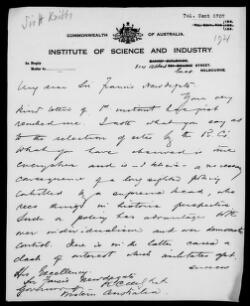 Tel. Cent 5705
COMMONWEALTH OF AUSTRALIA.
INSTITUTE OF SCIENCE AND INDUSTRY.
In Reply
Refer to
STREET,
East
MELBOURNE
My dear Sir Francis Newdegate
Your very
kind letter of 1st instant has just
reached me. I note what you say as
to the selection of sites by the R.C.
What you have observed is true
everywhere and is – I think – a necessary
consequence of a long sighted policy
controlled by a supreme head, who
sees things in historic perspective.
Such a policy has advantages both
over individualism and over democratic
control. There is in the latter, cases a
clash of interest which militates agst.
success
His Excellency
Sir Francis Newdegate
Government
Western Australia.